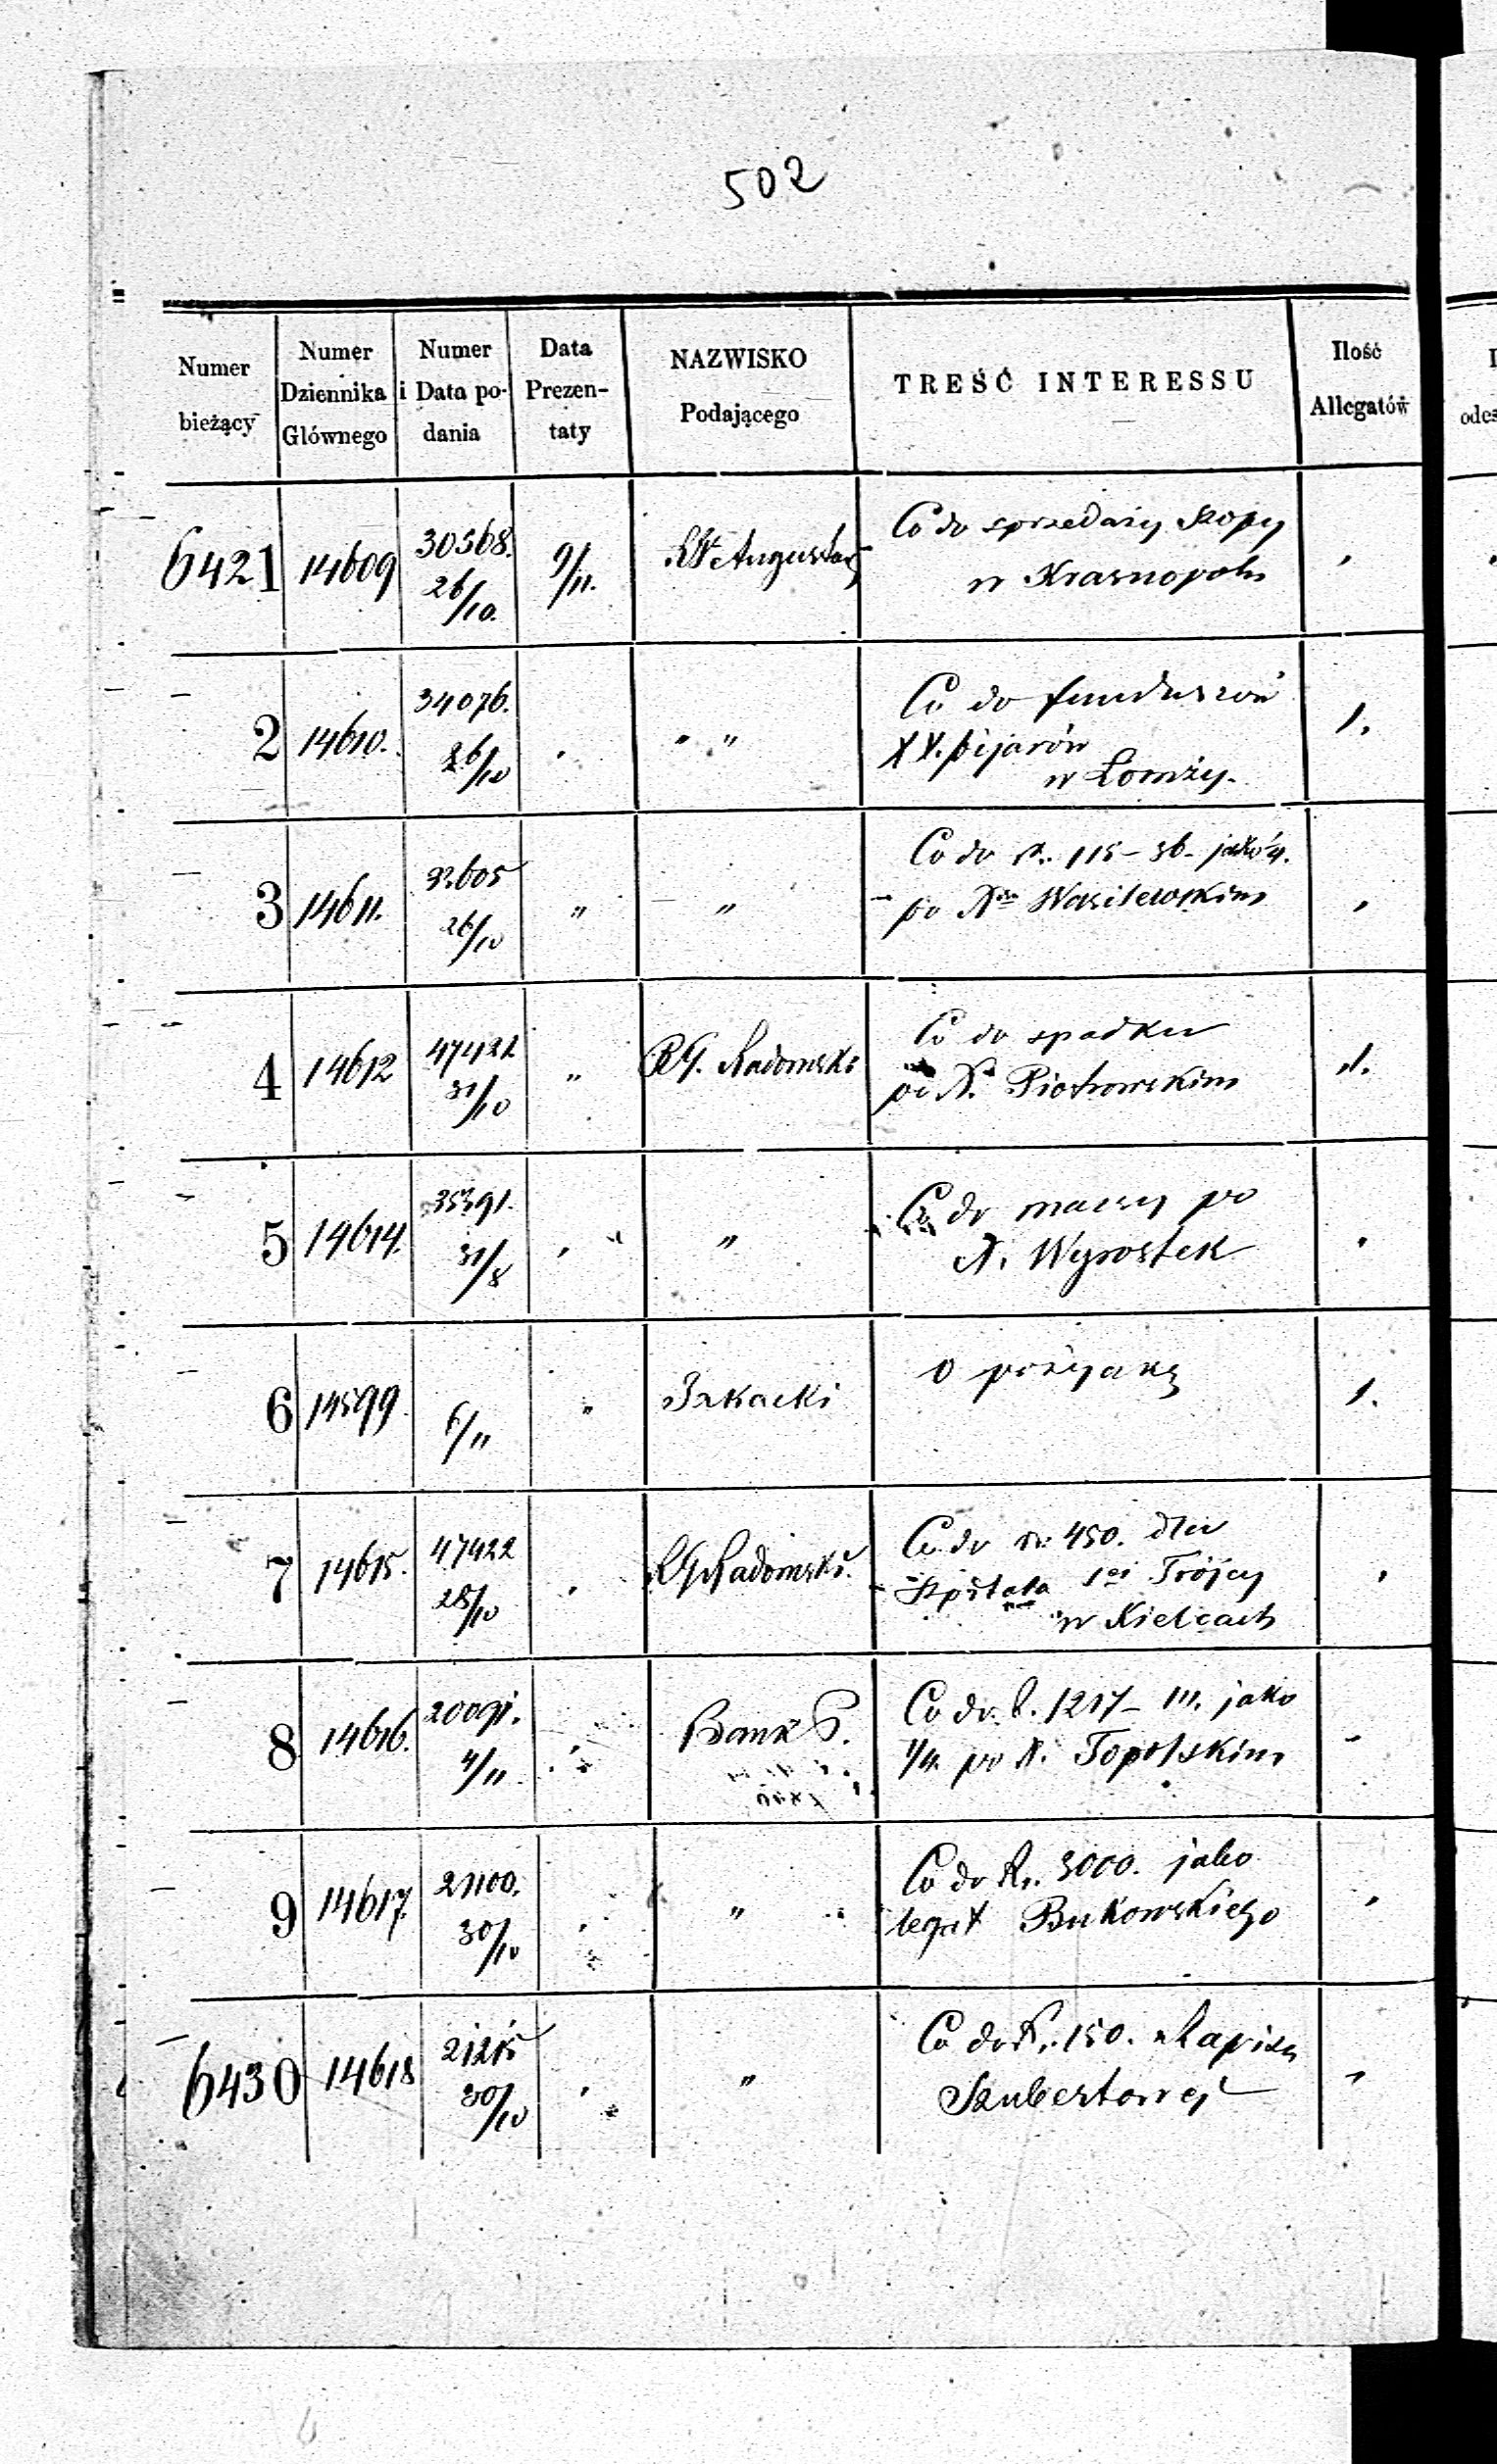 502
Numer bieżący | Numer Dziennika Głównego | Numer i Data podania | Data Prezentaty | NAZWISKO Podającego | TREŚĆ INTERESSU | Ilość Allegatów
6421 14609 30368. 26/10. 9/11. Augustow Co do sprzedaży szopy
w Krasnopolu
2 14610. 34076. 26/10 " " Co do funduszów
XX. pijarów
w Łomży. 1.
3 14611. 32605 26/10 " " Co do 115-36- jako ¼.
po Wasilewskim
4 14612 47421 31/10 " RG. Radomski Co do spadku
po X. Piotrowskim 1.
5 14614. 35391. 31/8 " " Co do massy po
X. Wyrostek
6 14599 6/11 " o pożyczkę 1.
7 14615. 47422 28/10 " RG Radomski. Co do rs. 450. dla
Szpitala Stej Trójcy
w Kielcach
8 14616. 20091. 4/11 " Bank P. Co do R. 1217- jako
1/4. po X. Topolskim
9 14617. 21100. 30/10 " " Co do R. 3000. jako
legat Bukowskiego
6430 14618 21215 30/10 " " Co do R. 150. zapisu
Szubertowej